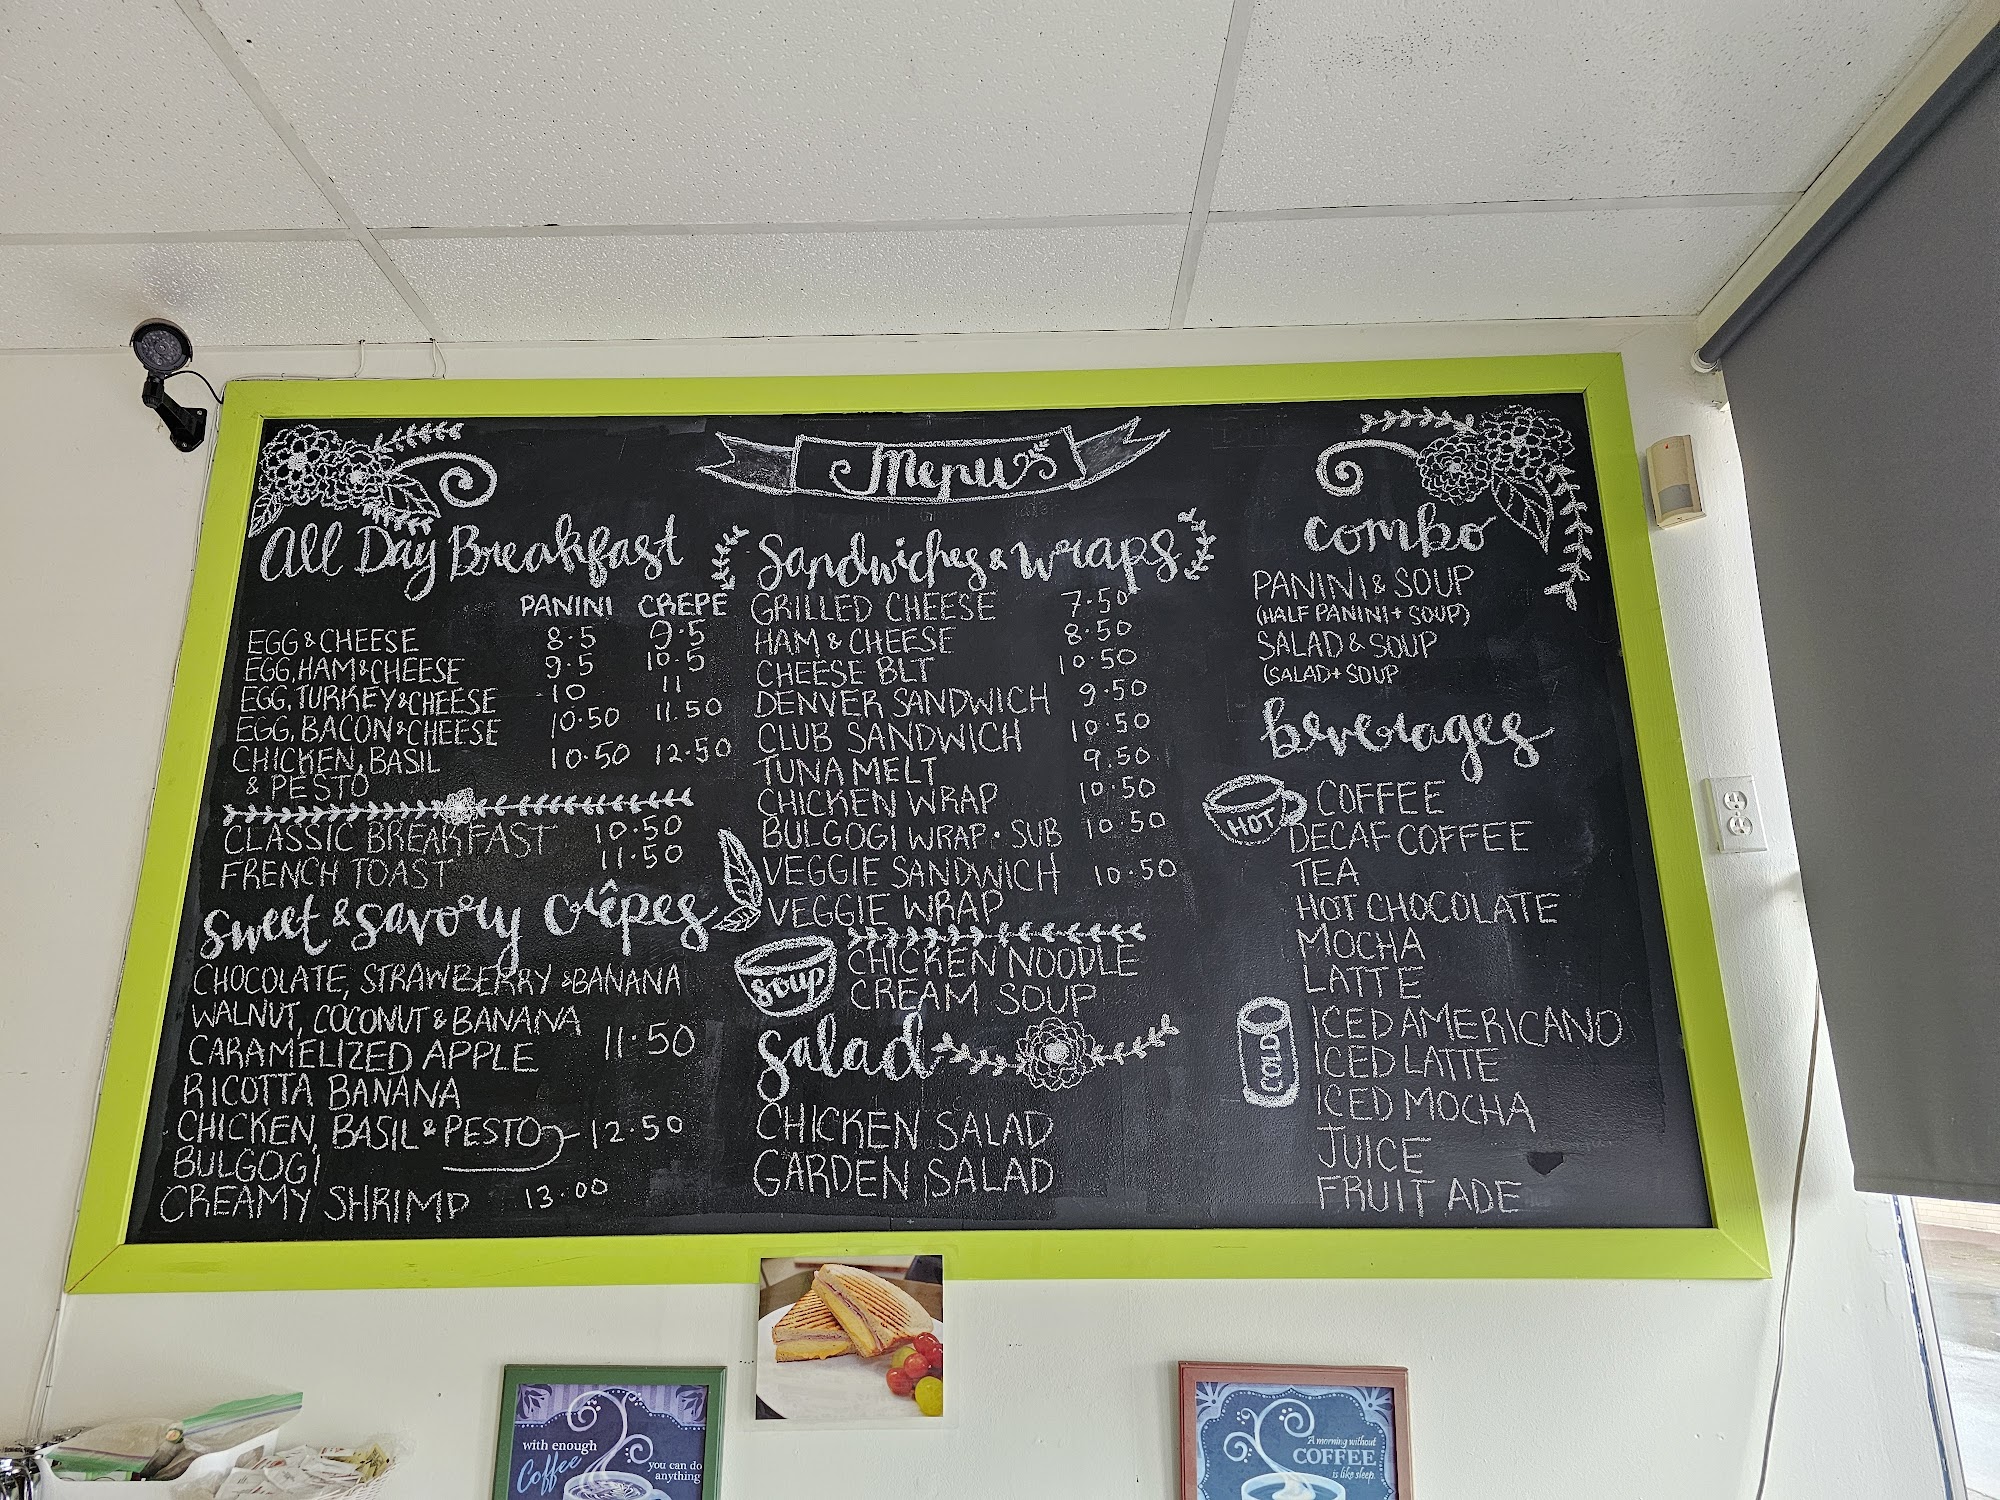 Menu
All Day Breakfast
PANINI CREPE
EGG & CHEESE 8.5 9.5
EGG, HAM & CHEESE 9.5 10.5
EGG, TURKEY & CHEESE 10 11
EGG, BACON & CHEESE 10.50 11.50
CHICKEN, BASIL 10.50 12.50
& PESTO
CLASSIC BREAKFAST 10.50
FRENCH TOAST 11.50
Sweet & Savory Crêpes
CHOCOLATE, STRAWBERRY & BANANA
WALNUT, COCONUT & BANANA
CARAMELIZED APPLE 11.50
RICOTTA BANANA
CHICKEN, BASIL & PESTO 12.50
BULGOGI
CREAMY SHRIMP 13.00
Sandwiches & Wraps
GRILLED CHEESE 7.50
HAM & CHEESE 8.50
CHEESE BLT 10.50
DENVER SANDWICH 9.50
CLUB SANDWICH 10.50
TUNA MELT 9.50
CHICKEN WRAP 10.50
BULGOGI WRAP • SUB 10.50
VEGGIE SANDWICH 10.50
VEGGIE WRAP
Soup
CHICKEN NOODLE
CREAM SOUP
Salad
CHICKEN SALAD
GARDEN SALAD
Combo
PANINI & SOUP
(HALF PANINI + SOUP)
SALAD & SOUP
(SALAD + SOUP
Beverages
HOT
COFFEE
DECAF COFFEE
TEA
HOT CHOCOLATE
MOCHA
LATTE
COLD
ICED AMERICANO
ICED LATTE
ICED MOCHA
JUICE
FRUIT ADE
with enough
Coffee
you can do
anything
A morning without
COFFEE
is like sleep.